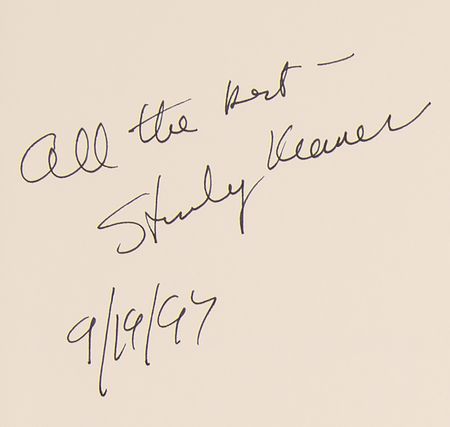 All the best –
Stanley Kramer
9/19/97